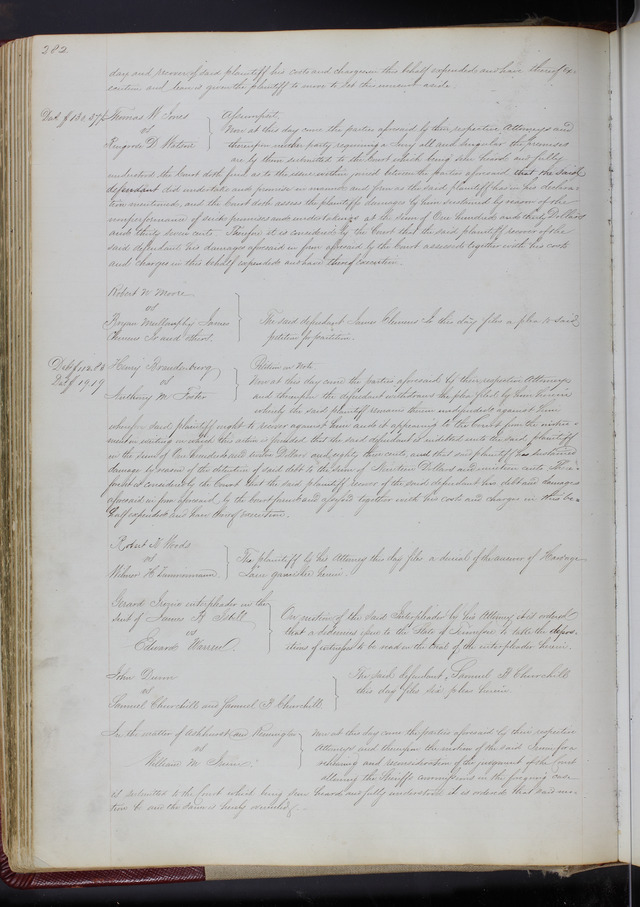 282
day and recover of said plaintiff his costs and charges in this behalf expended and have thereof ex-
ecution and leave is given the plaintiff to move to set this nonsuit aside.
Dam $130.37½ Thomas W Jones Assumpsit
vs Now at this day come the parties aforesaid by their respective Attorneys and
D. thereupon neither party requiring a Jury all and singular the premises
are by them submitted to the Court which being seen heard and fully
understood the Court doth find as to the issue within joined between the parties aforesaid that the said
defendant did undertake and promise in manner and form as the said plaintiff has in his declara-
tion mentioned, and the Court doth assess the plaintiffs damages by him sustained by reason of the
nonperformance of such promises and undertakings at the Sum of One hundred and thirty Dollars
and thirty seven cents. Therefore it is considered by the Court that the said plaintiff recover of the
said defendant his damages aforesaid in form aforesaid by the Court assessed together with his costs
and charges in this behalf expended and have thereof execution.
Robert N Moore
vs
Bryan Mullanphy James The said defendant James Clemens Jr this day files a plea to said
Clemens Jr and others. petition for partition.
Debt $112.80 Henry Brandenburg Petition on Note.
Dam $19.19 vs Now at this day come the parties aforesaid by their respective Attorneys
Anthony M. Foster and thereupon the defendant withdraws the plea filed by him herein
whereby the said plaintiff remains therein undefended against him
wherefore said plaintiff ought to recover against him and it appearing to the Court from the instru-
ment in writing on which this action is founded that the said defendant is indebted unto the said plaintiff
in the sum of One hundred and twelve Dollars and eighty three cents, and that said plaintiff has sustained
damage by reason of the detention of said debt to the sum of Nineteen Dollars and nineteen cents. There-
fore it is considered by the Court that the said plaintiff recover of the said defendant his debt and damages
aforesaid in form aforesaid, by the Court found and assessed together with his costs and charges in this be-
half expended and have thereof execution.
Robert K Woods
vs The plaintiff by his Attorney this day files a denial of the answer of
H garnishee herein.
Gerard interpleader in the
suit of James H Isbell On motion of the said Interpleader by his Attorney it is ordered
vs that a dedimus issue to the State of Tennessee to take the depos-
Edward Warren. itions of witnesses to be read on the trial of the interpleader herein.
John Dunn The said defendant, Samuel B Churchill
vs this day files six pleas herein
Samuel Churchill and Samuel B Churchill
In the matter of Ashhurst and Remington Now at this day come the parties aforesaid by their respective
vs Attorneys and thereupon the motion of the said for a
William M rehearing and reconsideration of the judgment of the Court
allowing the Sheriff commissions in the foregoing case
is submitted to the Court which being seen heard and fully understood it is ordered that said mo-
tion be and the same is hereby overruled.